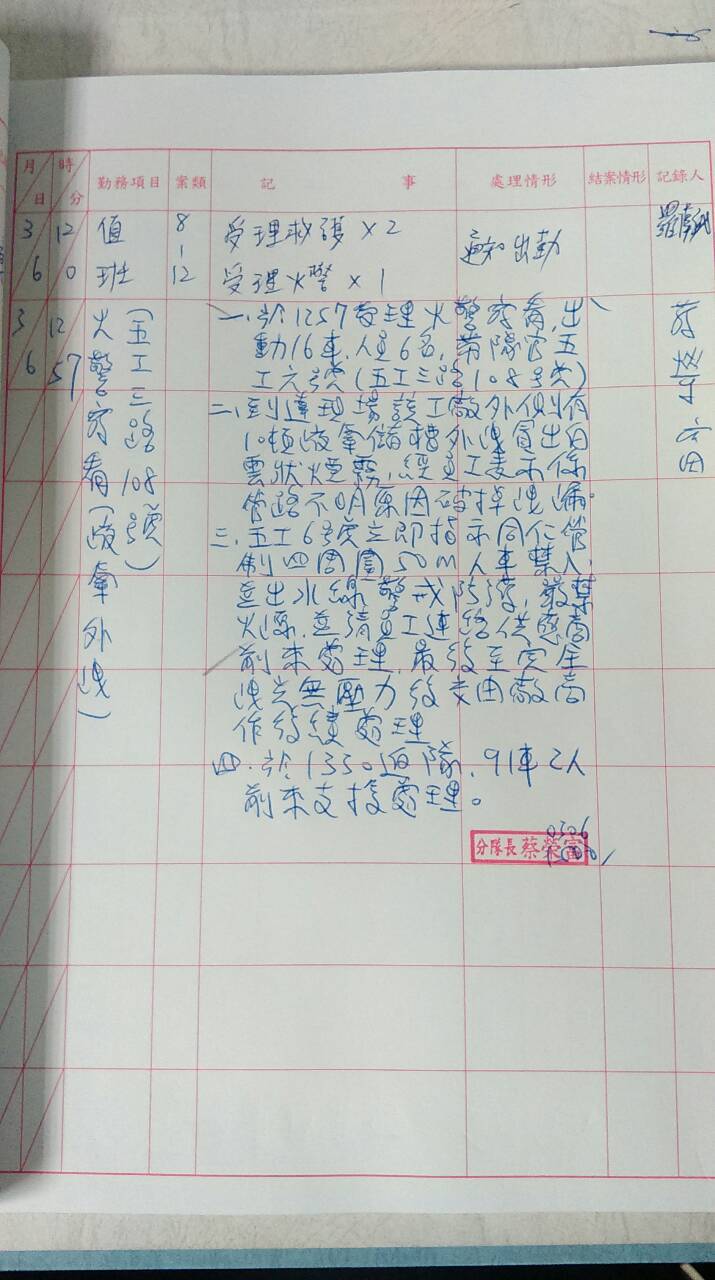 月 日 時 分 勤務項目 案類 記事 處理情形 結案情形 記錄人
3 6 12 0 值班 8-12
受理救護×2
受理火警×1
通知出動
3 6 12 57
火警察看(液氧外洩)
(五工三路108號)
一、於1257受理火警察看,出
動16車,人員6名,帶隊官五
工六號(五工三路108號)
二、到達現場該工廠外側有
10頓液氧儲槽外洩冒出白
雲狀煙霧,經員工表示係
管路不明原因破掉洩漏。
三、五工6號立即指示同仁管
制四周圍50m人車禁入,
並出水線警戒防護,嚴禁
火源,並請員工連絡供應商
前來處理,最後至完全
洩完無壓力後交由廠商
作後續處理
四、於1350返隊,91車2人
前來支援處理。
分隊長 蔡榮富
0306